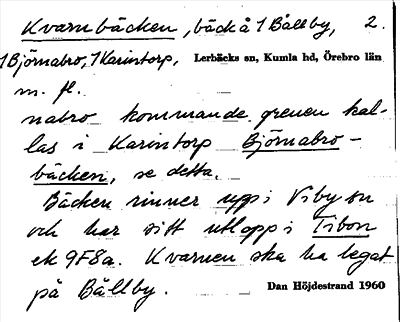 Kvarnbäcken, bäck å 1 Bållby, 2.
1 Björnabro, 1 Karintorp, Lerbäcks sn, Kumla hd, Örebro län
m. fl.
nabro kommande grenen kal-
las i Karintorp Björnabro-
bäcken, se detta.
Bäcken rinner upp i Viby sn
och har sitt utlopp i Tibon
ek 9F8a. Kvarnen ska ha legat
på Bållby. Dan Höjdestrand 1960